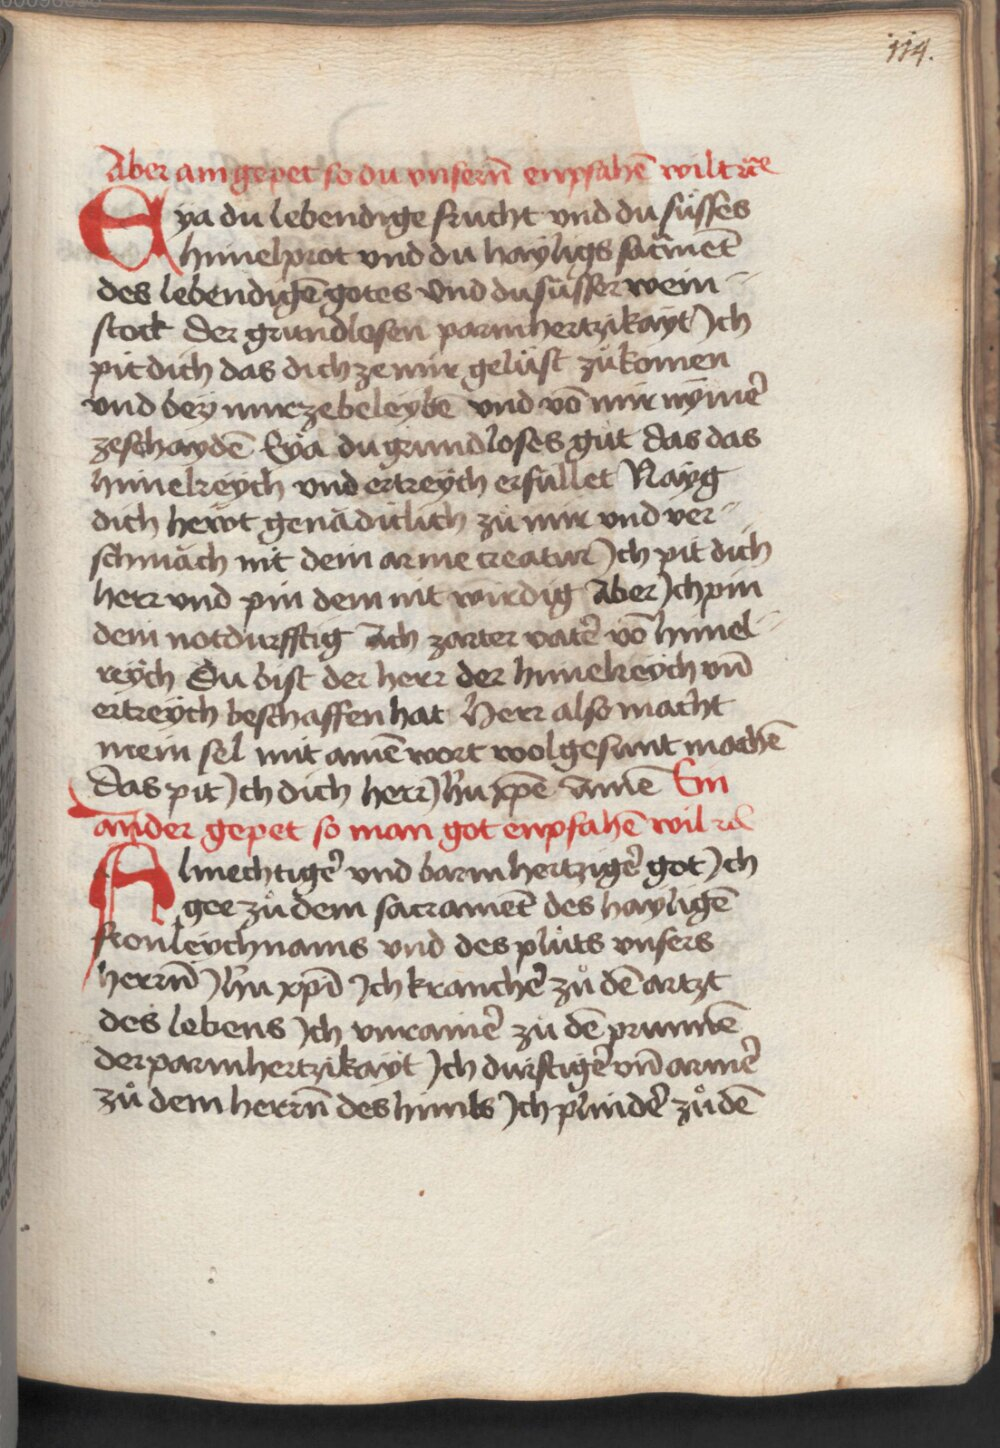 114.
Aber ain gepet so du vnsern̄ enpfahē wilt rc̄e
Eya du lebendige frucht vnd du süsses
himelprot vnd du hayligs sacrmēt
des lebendigē gotes vnd du süsser wein-
stock Der grundlosen parmhertzikayt Ich
pit dich das dich ze mir gelüst zůkomen
vnd bey mir ze beleybē vnd vō mir nymer̄
zeschaydē Eya du grundloses gůt das das
himelreych vnd ertreych erfüllet Nayg
dich hewt genädiclich zů mir vnd ver-
schmäch nit dein arme creatur Ich pit dich
herr vnd pin dein nit wirdig Aber Ich pin
dein notdurfftig Ach zarter vater̄ vō himel-
reych Du bist der herr der himelreych vn̄
ertreych beschaffen hat Herr also macht
mein sel mit ainē wort wolgesunt machē
das pit Ich dich herr Ih̄u xp̄e Amē Ein
ander gepet so man got enpfahē wil
Almechtiger̄ vnd barmhertziger̄ got Ich
gee zů dem sacramēt des hayligē
fronleychnams vnd des plůts vnsers
herrn̄ Ih̄u xp̄i Ich krancher̄ zů dē artzt
des lebens Ich vnrainer̄ zů dē prunnē
der parmhertzikayt Ich durstiger̄ vn̄ armer̄
zů dem herrn̄ des himls Ich plinder̄ zů dē